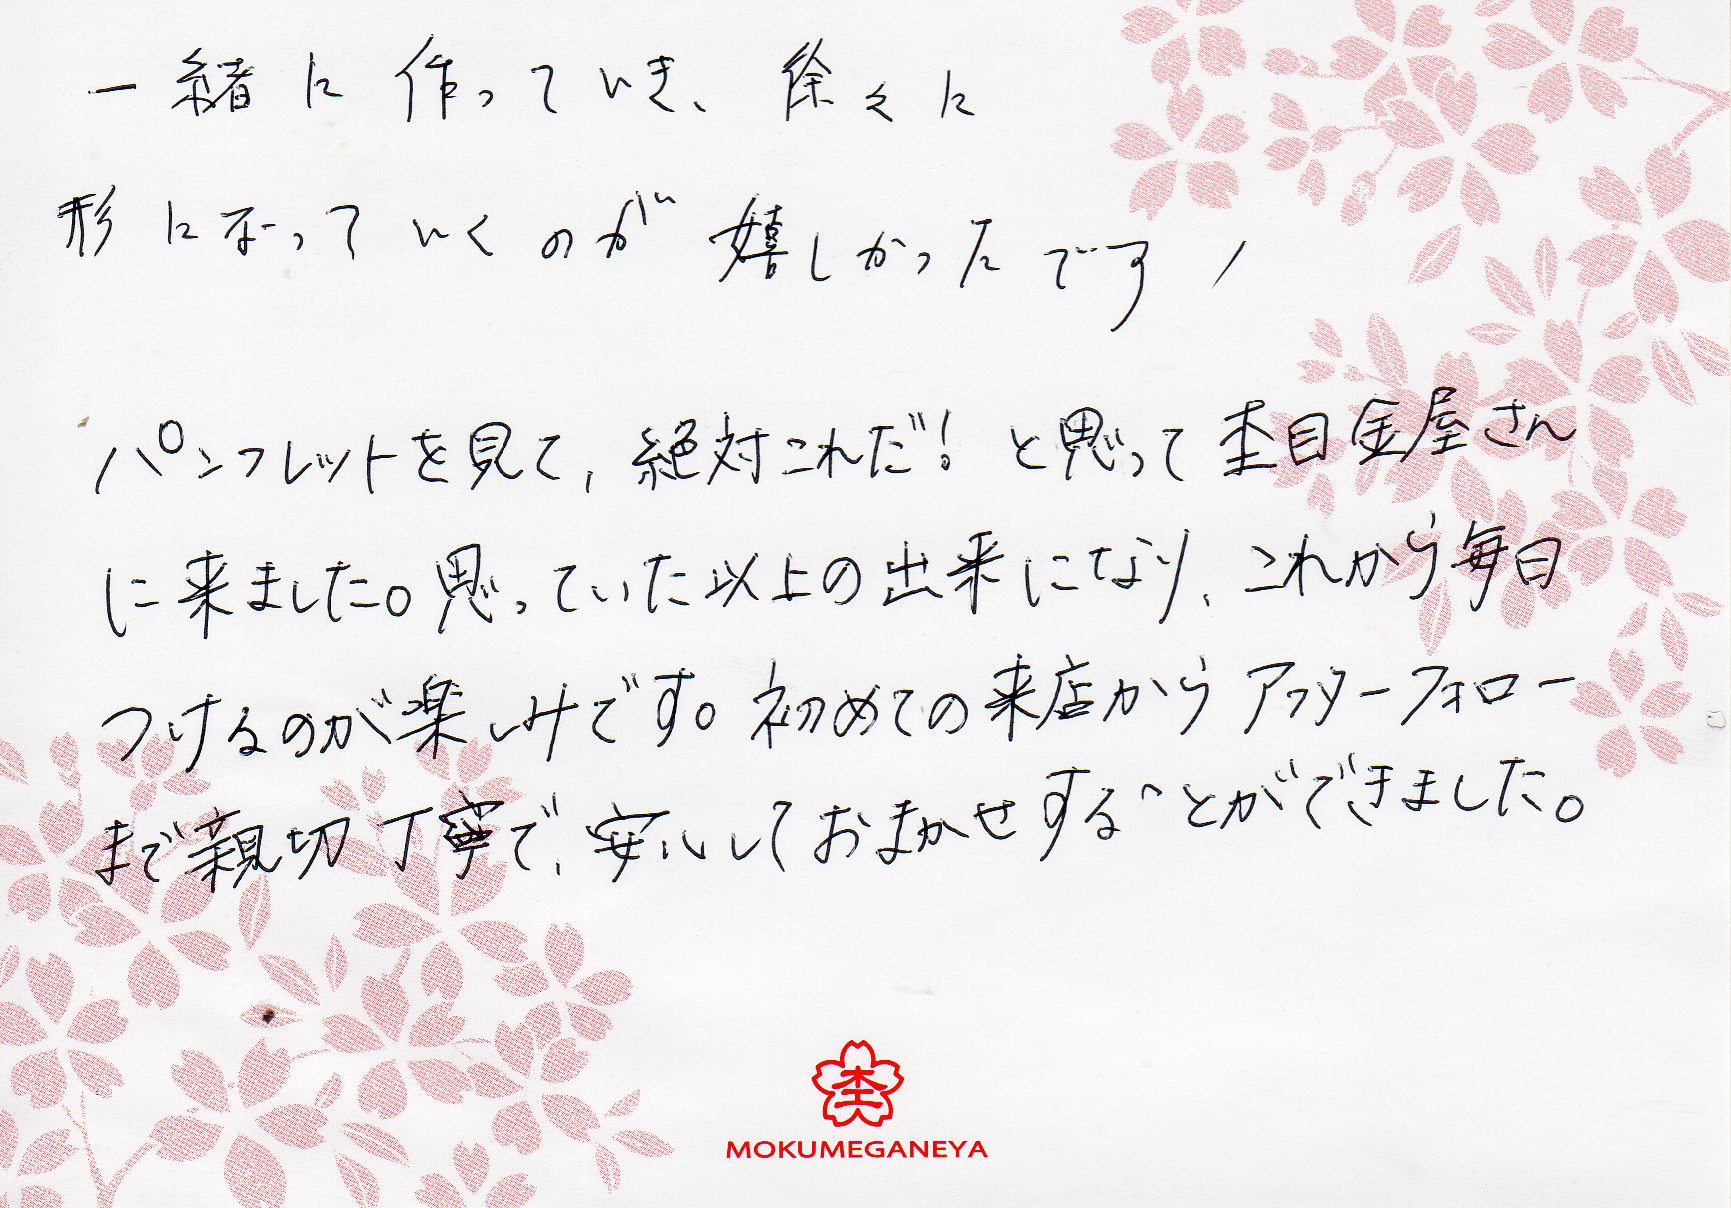 一緒に作っていき、徐々に
形になっていくのが嬉しかったです!
パンフレットを見て、絶対これだ!と思って杢目金屋さん
に来ました。思っていた以上の出来になり、これから毎日
つけるのが楽しみです。初めての来店からアフターフォロー
まで親切丁寧で、安心しておまかせすることができました。
杢
MOKUMEGANEYA